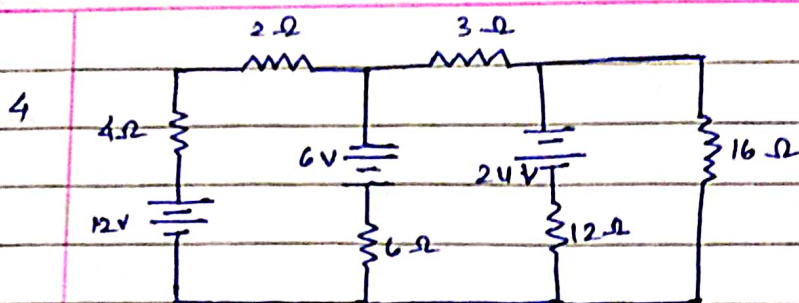 2 Ω 3 Ω
4 4Ω 6V 24V 16 Ω
12V 6 Ω 12Ω